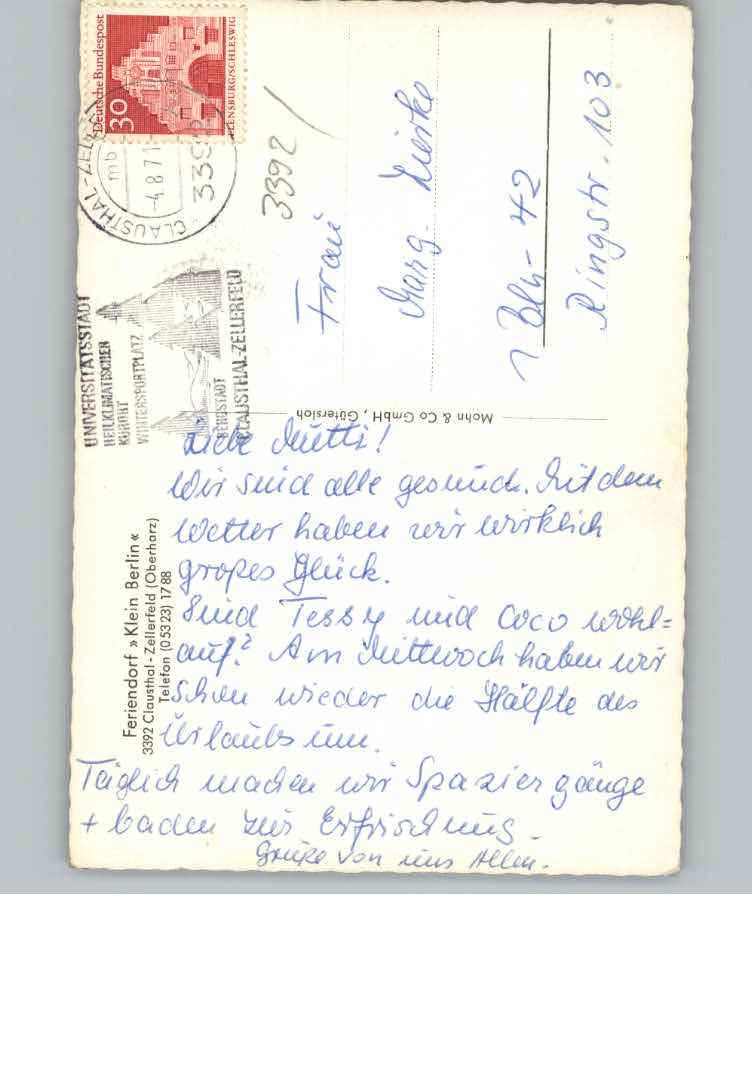 Deutsche Bundespost
30
FLENSBURG/SCHLESWIG
CLAUSTHAL-ZELLERFELD
mb
-4.8.71
3392
3392
UNIVERSITÄTSSTADT
HEILKLIMATISCHER
KURORT
WINTERSPORTPLATZ
BERGSTADT
CLAUSTHAL-ZELLERFELD
Frau
Marg.
1 Bln-42
Ringstr. 103
Mohn & Co GmbH, Gütersloh
Feriendorf »Klein Berlin«
3392 Clausthal-Zellerfeld (Oberharz)
Telefon (05323) 1788
Liebe Mutti!
Wir sind alle gesund. Mit dem
Wetter haben wir wirklich
großes Glück.
Sind Tessy und Coco wohl=
auf? Am Mittwoch haben wir
schon wieder die Hälfte des
Urlaubs um.
Täglich machen wir Spaziergänge
+ baden zur Erfrischung.
Grüße von uns Allen.